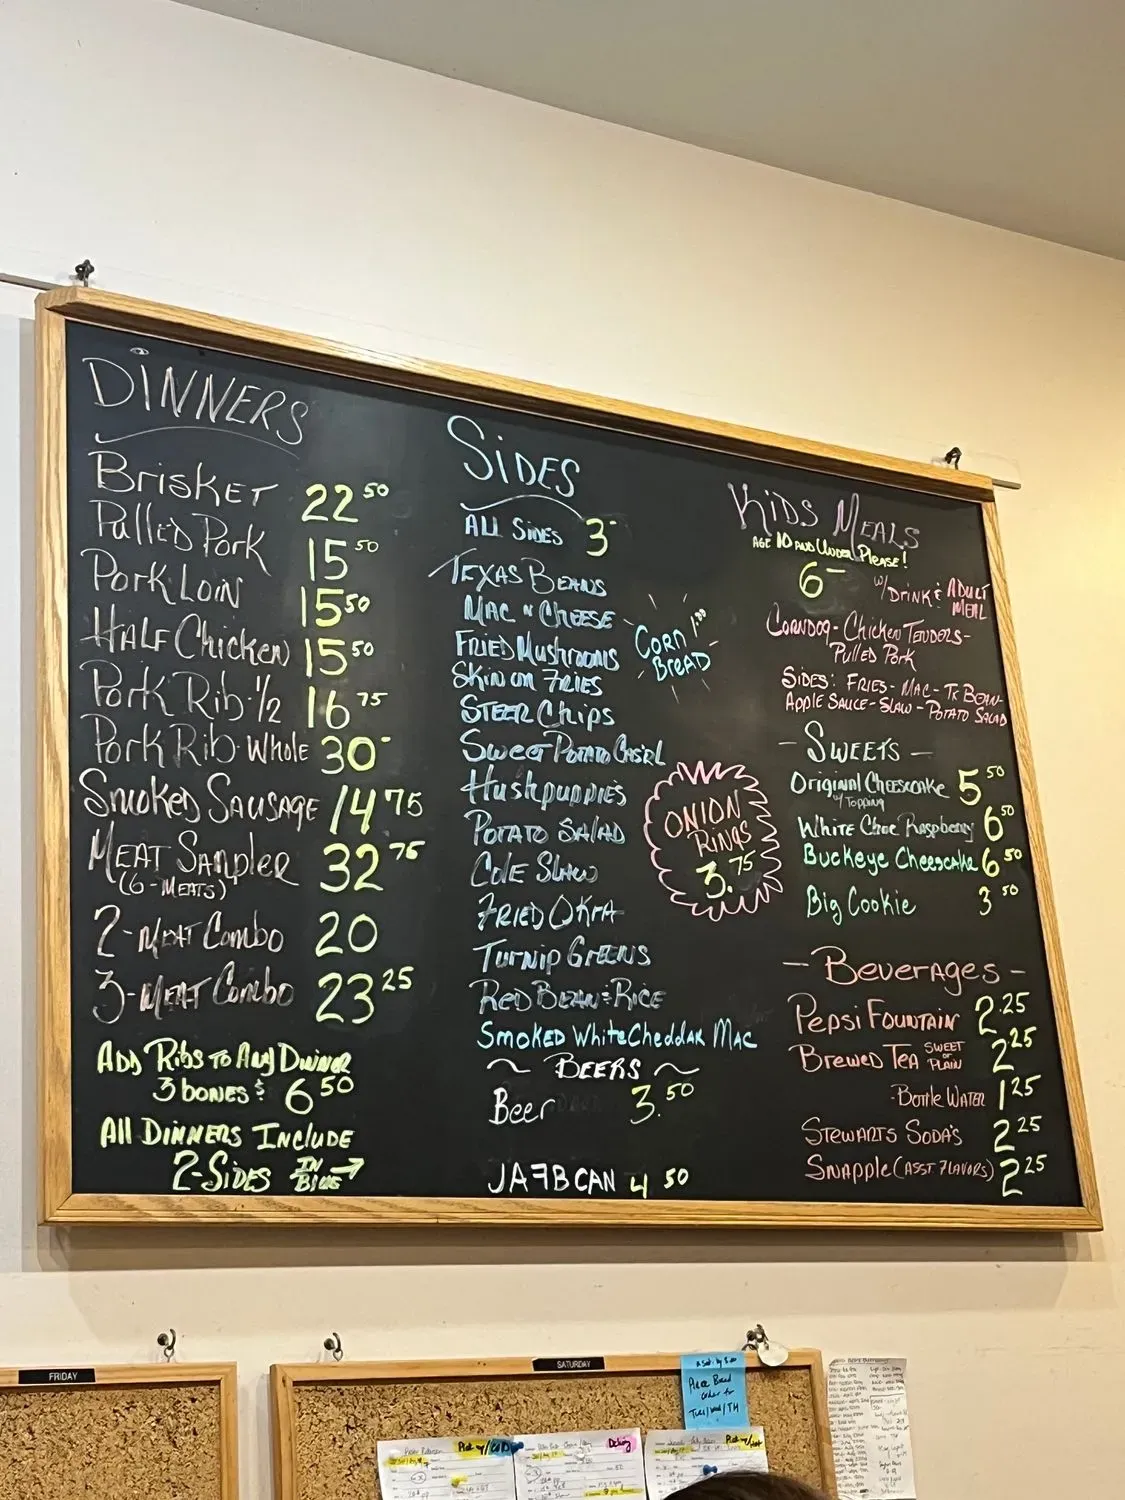 DINNERS
BRISKET 22 50
Pulled Pork 15 50
PORK LOIN 15 50
HALF CHICKEN 15 50
PORK RIB-1/2 16 75
PORK RIB-WHOLE 30-
SMOKED SAUSAGE 14 75
MEAT SAMPLER 32 75
(6-MEATS)
2-MEAT COMBO 20
3-MEAT COMBO 23 25
ADD RIBS TO ANY DINNER
3 BONES 6 50
ALL DINNERS INCLUDE
2-SIDES IN BLUE →
SIDES
ALL SIDES 3-
TEXAS BEANS
MAC N CHEESE
FRIED MUSHROOMS
SKIN ON FRIES
STEER CHIPS
SWEET POTATO CAS'RL
Hushpuppies
POTATO SALAD
COLE SLAW
FRIED OKRA
TURNIP GREENS
RED BEAN & RICE
SMOKED WHITE CHEDDAR MAC
CORN BREAD 1.00
ONION RINGS
3.75
~ BEERS ~
Beer 3.50
JAFBCAN 4 50
KIDS MEALS
AGE 10 AND UNDER PLEASE!
6- W/DRINK & ADULT MEAL
CORNDOG - CHICKEN TENDERS -
PULLED PORK
SIDES: FRIES - MAC - TX BEAN -
APPLE SAUCE - SLAW - POTATO SALAD
- SWEETS -
ORIGINAL CHEESECAKE 5 50
W/ TOPPING
WHITE CHOC RASPBERRY 6 50
BUCKEYE CHEESCAKE 6 50
BIG COOKIE 3 50
- BEVERAGES -
PEPSI FOUNTAIN 2.25
BREWED TEA SWEET or PLAIN 2 25
-BOTTLE WATER 1 25
STEWARTS SODA'S 2 25
SNAPPLE (ASST. FLAVORS) 2 25
FRIDAY
SATURDAY